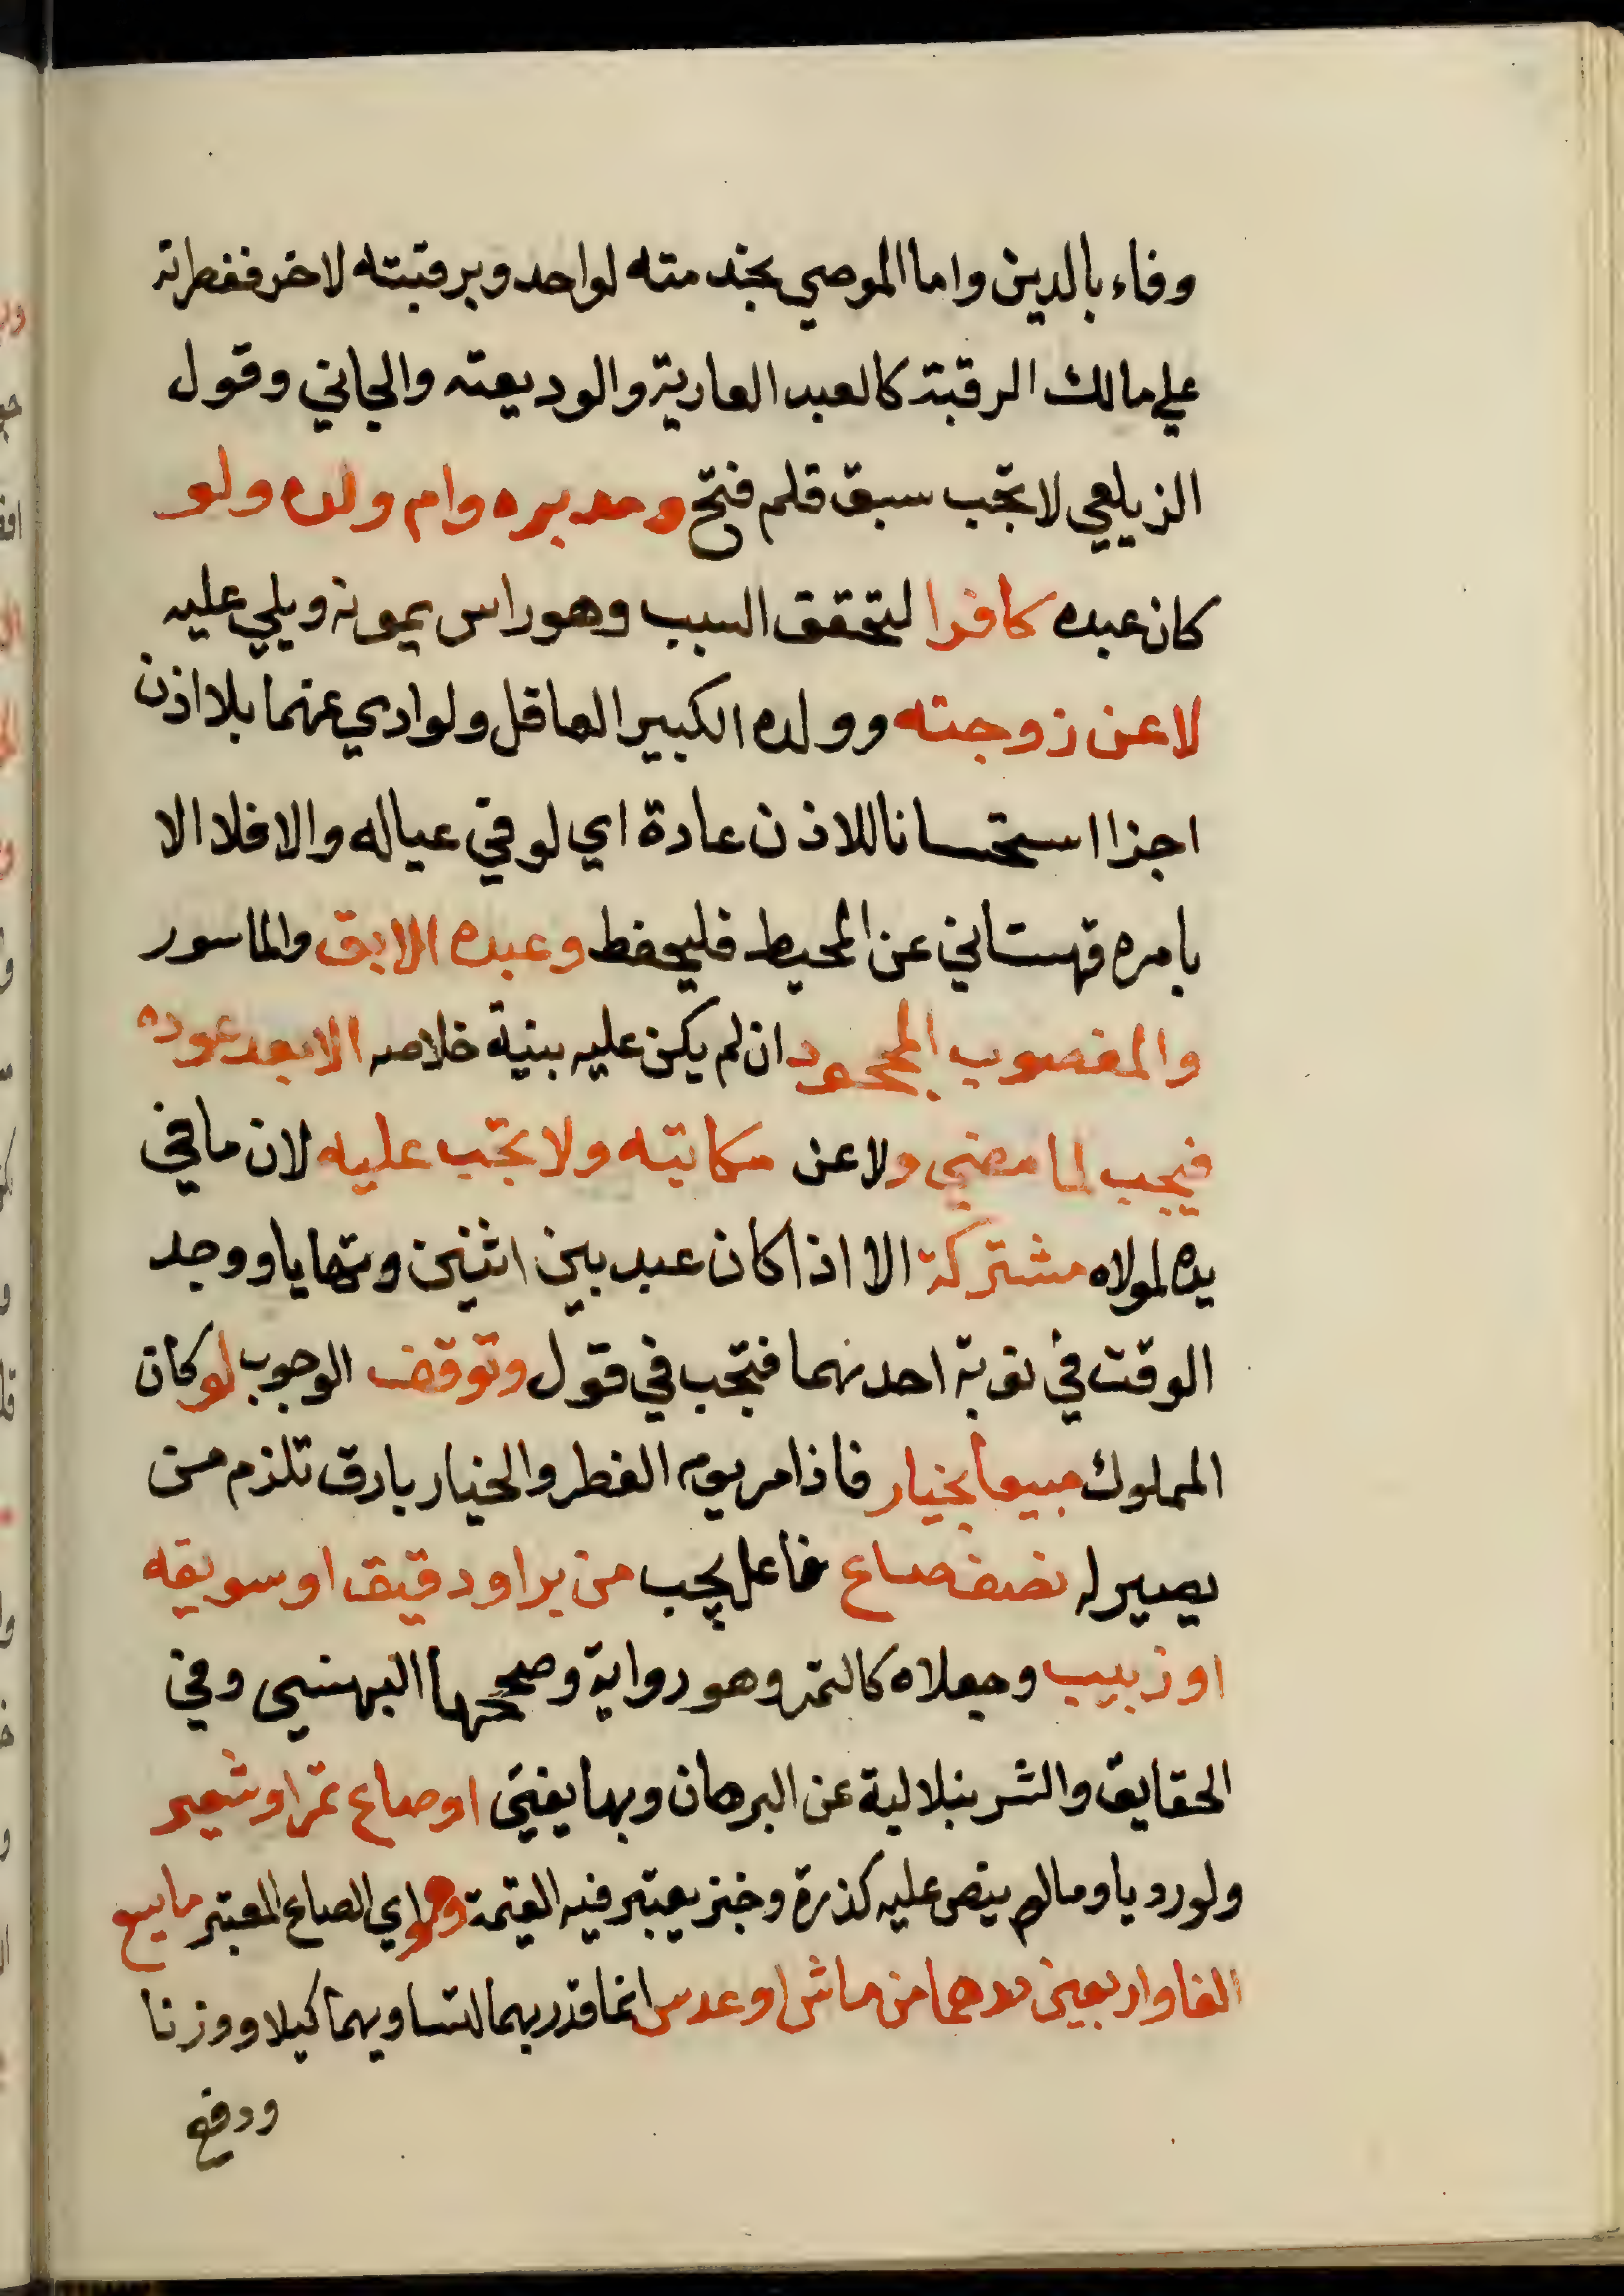 وفاء بالدين واما الموصي بخدمته لواحد وبرقبته لاخر ففطرته
علي مالك الرقبة كالعبد العارية والوديعته والجاني وقول
الزيلعي لا تجب سبق قلم فتح ومدبره وام ولده ولو
كان عبده كافرا لتحقق السبب وهو راس يمونه ويلي عليه
لا عن زوجته وولده الكبير العاقل ولو ادي عنهما بلا اذن
اجزا استحسانا للاذن عادة اي لو في عياله والا فلا الا
بامره قهستاني عن المحيط فليحفط وعبده الابق والماسور
والمغصوب المجحود ان لم يكن عليه بينة خلاصه الا بعد عوده
فيجب لما مضي ولا عن مكاتبته ولا تجب عليه لان ما في
يده لمولاه مشتركة الا اذا كان عبد بين اثنين وتهايا ووجد
الوقت في نوبة احدهما فتجب في قول وتوقف الوجوب لو كان
المملوك مبيعا بخيار فاذا مر يوم الفطر والخيار باق تلزم من
يصير له نصف صاع فاعل يجب من بر او دقيق او سويقه
او زبيب وجعلاه كالتمر وهو رواية وصححها البهنسي وفي
الحقايق والشرنبلالية عن البرهان وبها يفتي او صاع تمر او شعير
ولو رديا وما لم ينص عليه كذرة وخبز يعتبر فيه القيمة وهو اي الصاع المعتبر ما يسع
الفا واربعين درهما من ماش او عدس انما قدر بهما لتساويهما كيلا ووزنا
ودفع